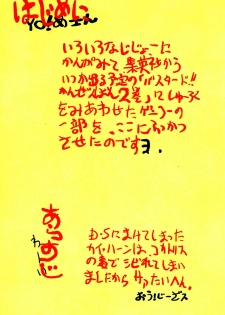 はじめに
YO!めエん
いろいろなじじょーに
かんがみて集英社から
いつか出る予定の「バスタード!!
かんぜんばん2巻」にしゅーろく
をみあわせたゲラーの
一部を、ここにふかつ
させたのですヨ.
あらすじ
D・Sにまけてしまった
カイ・ハーンは、コカトリス
の毒でシビれてしまい
ましたからサアたいへん。
おう!じーザス